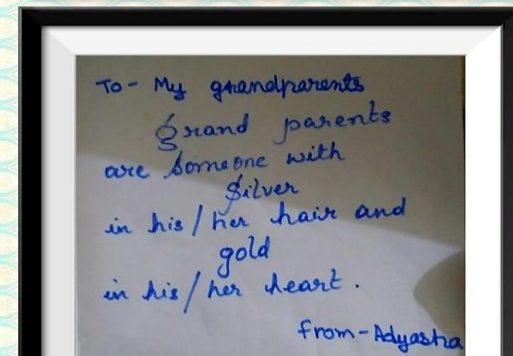 To - My grandparents
grand parents
are someone with
silver
in his / her hair and
gold
in his / her heart .
from - Adyasha